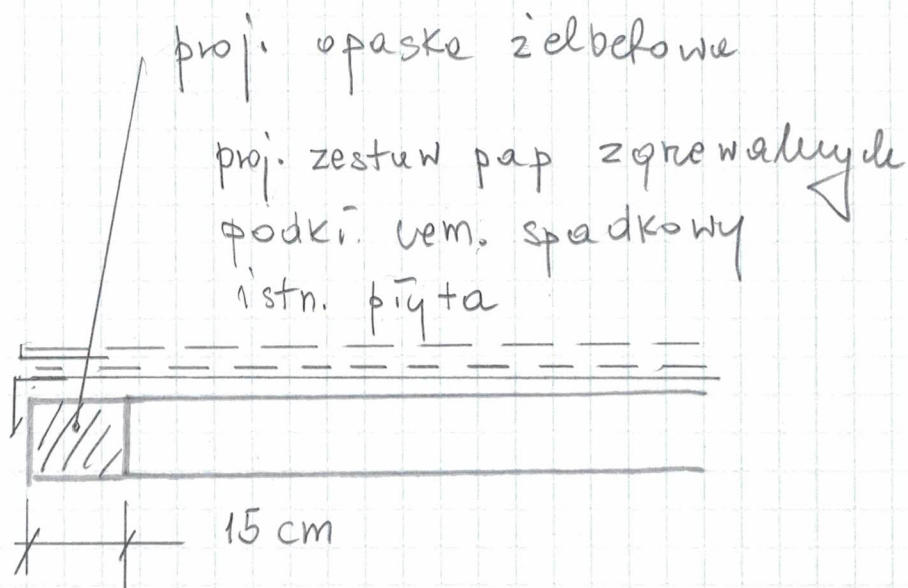 proj. opaska żelbetowa
proj. zestaw pap zgrzewalnych
podkł. cem. spadkowy
istn. płyta
15 cm